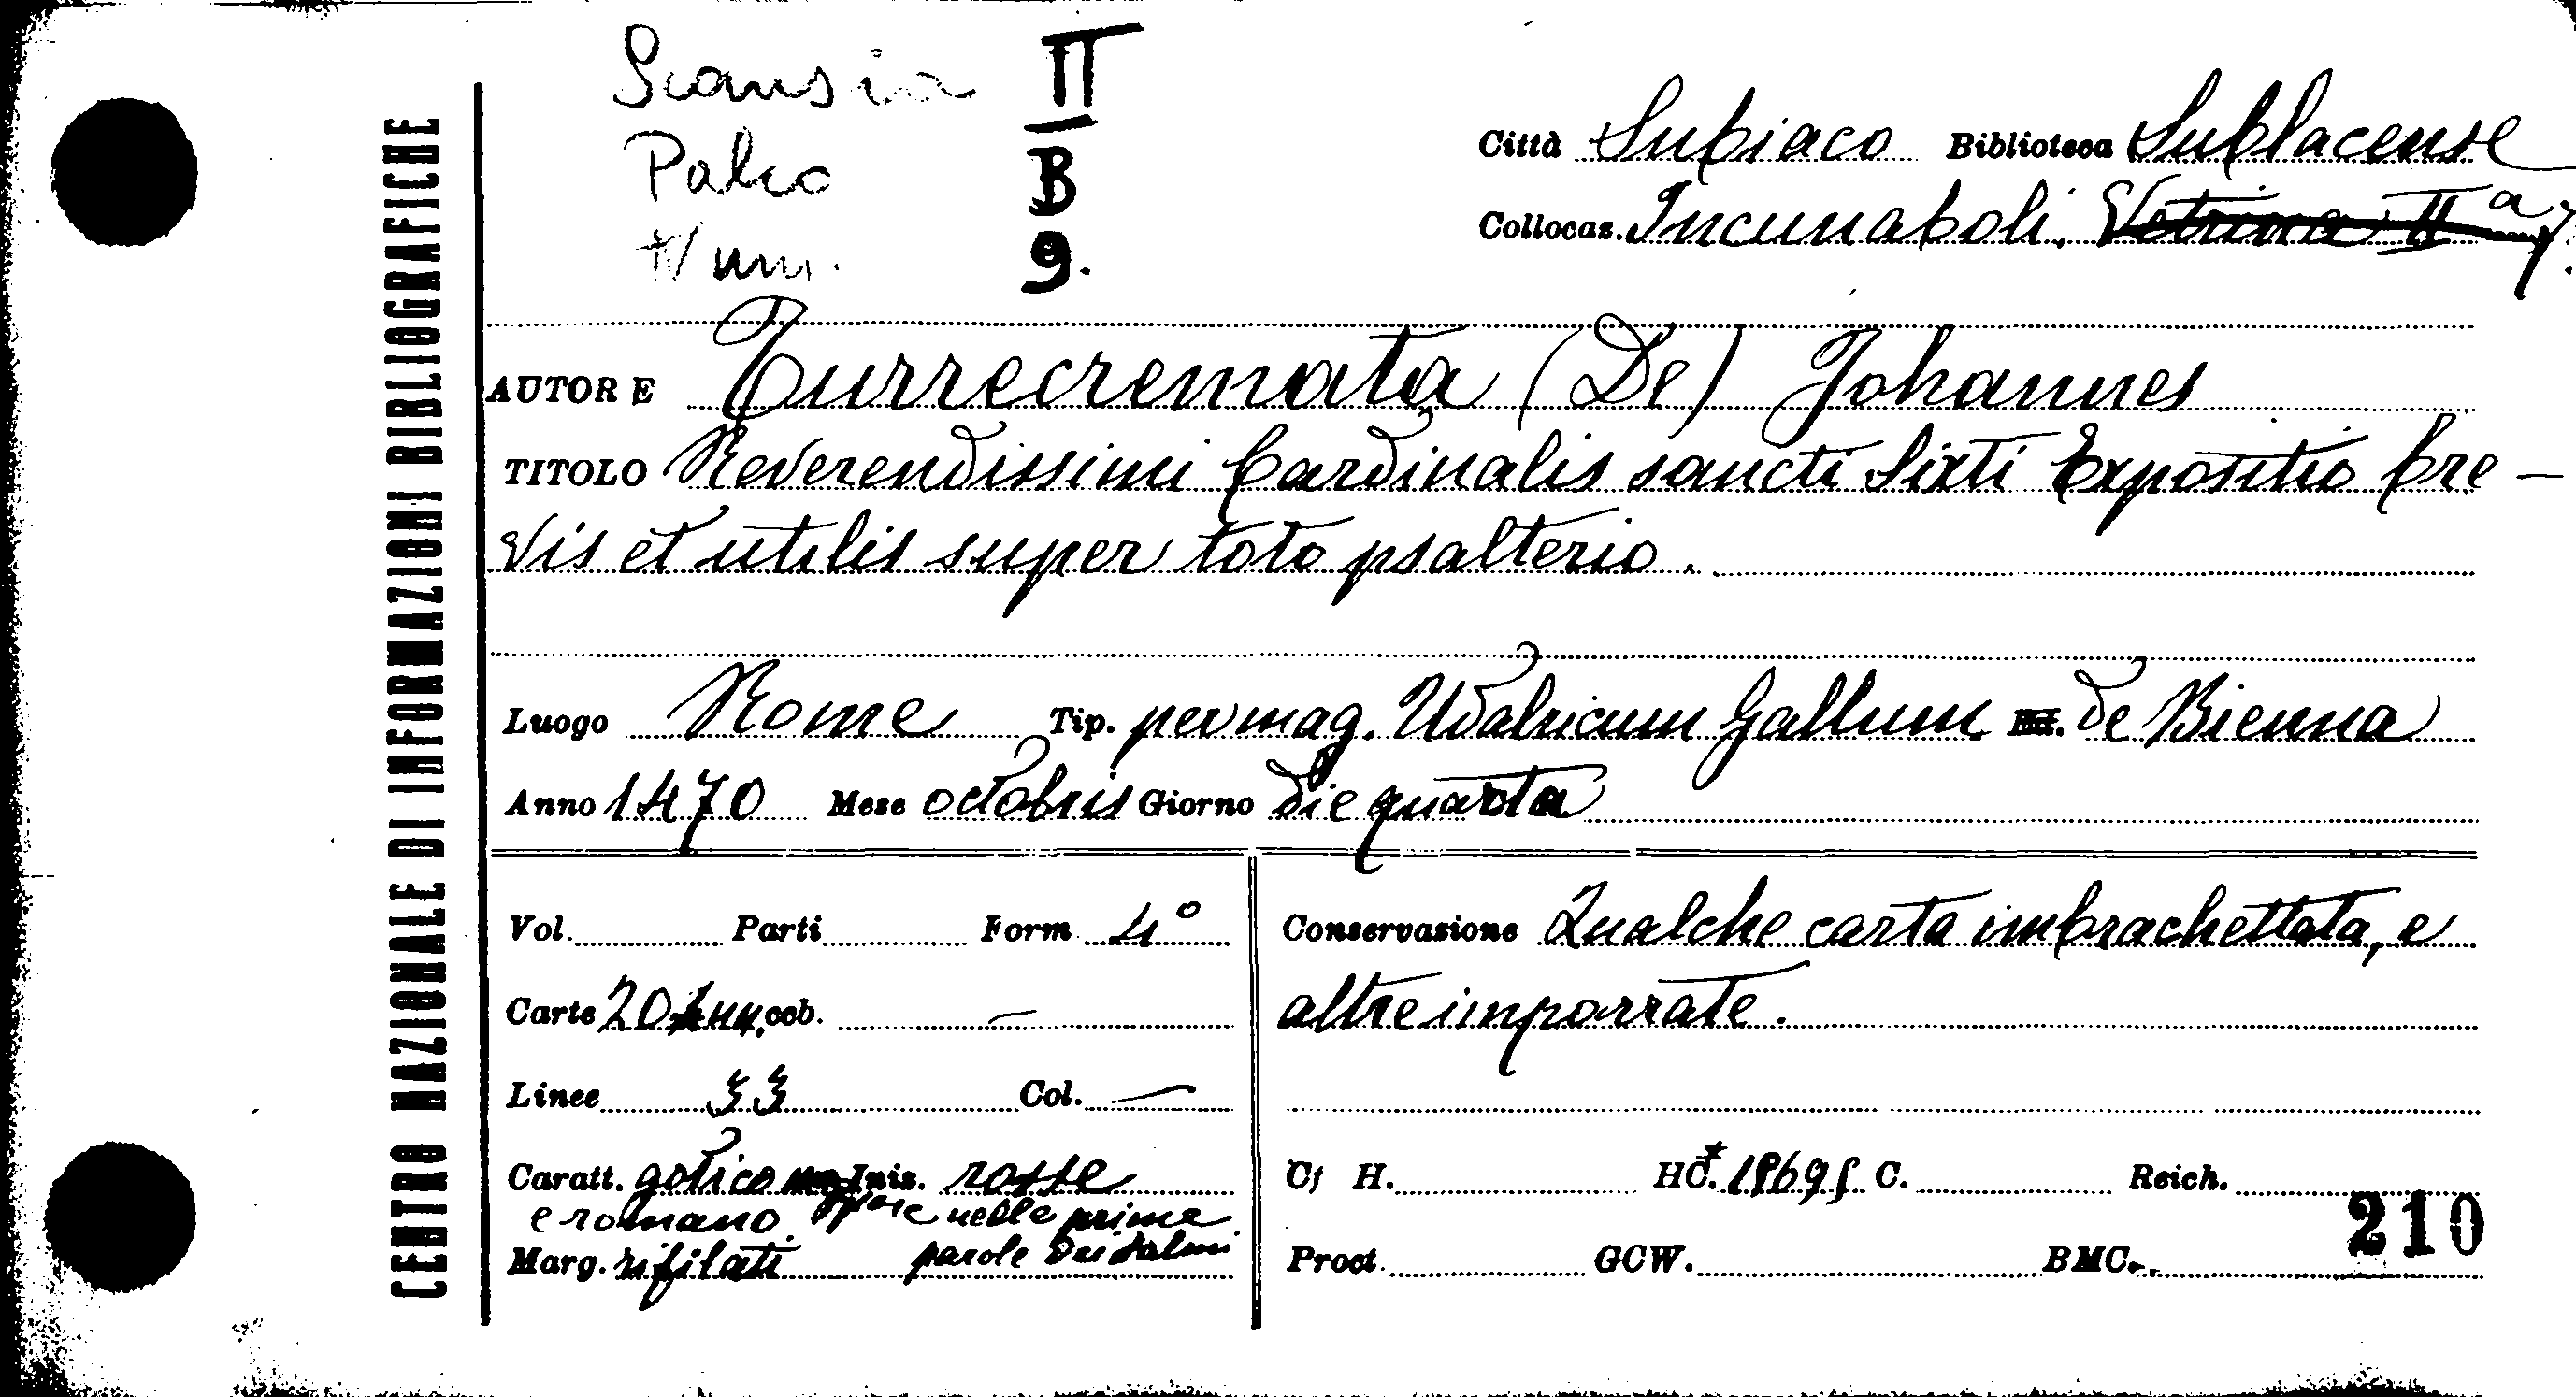 Scansia II
Palco B
Num. 9.
Città Subiaco Biblioteca Sublacense
Collocaz. Incunaboli. Vetrina II a 7.
AUTORE Turrecremata (De) Johannes
TITOLO Reverendissimi Cardinalis sancti Sixti Expositio bre-
vis et utilis super toto psalterio.
Luogo Rome Tip. per mag. Udalricum Gallum de Bienna
Anno 1470 Mese octobris Giorno die quarta
Vol. Parti Form. 4°
Conservazione Qualche carta imbrachettata, e
Carte 20 nn. cob. —
altre imporrate.
Linee 33 Col. —
Caratt. gotico Iniz. rosse
e romano nelle prime
Marg. rifilati parole dei salmi
Cf H. HC.* C. Reich.
Proct. GCW. BMC.
210
CENTRO NAZIONALE DI INFORMAZIONI BIBLIOGRAFICHE